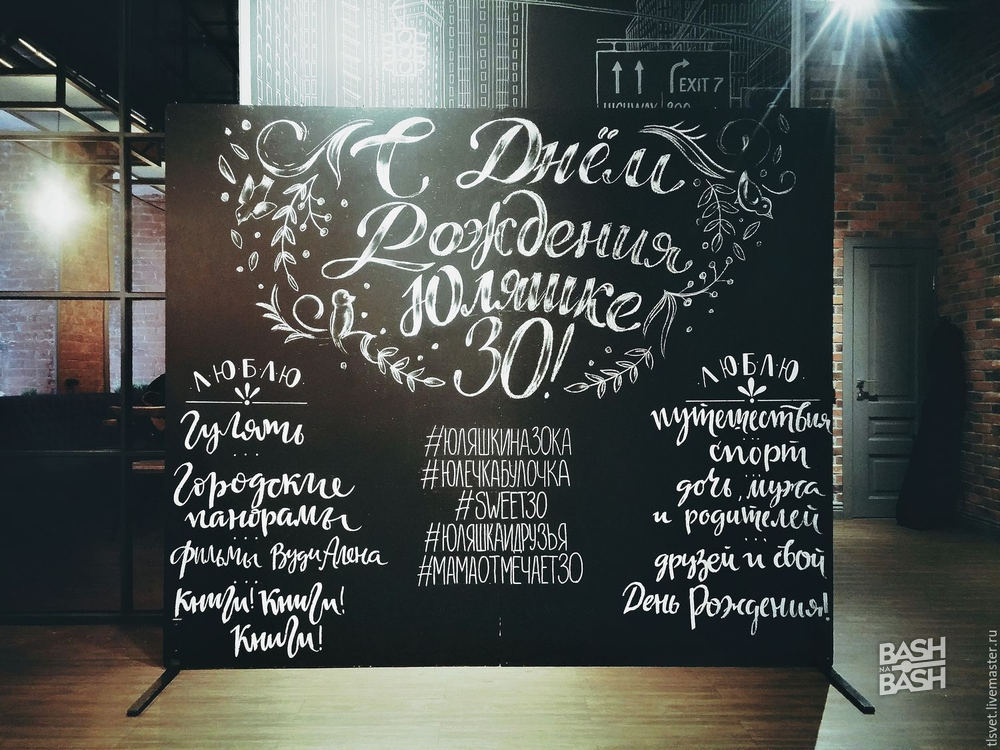 EXIT 7
HIGHWAY 200
С Днём
Рождения
Юляшке
30!
ЛЮБЛЮ
Гулять
Городские
панорамы
фильмы Вуди Алена
Книги! Книги!
Книги!
#ЮЛЯШКИНАЗОКА
#ЮЛЕЧКАБУЛОЧКА
#SWEET30
#ЮЛЯШКАИДРУЗЬЯ
#МАМАОТМЕЧАЕТ30
ЛЮБЛЮ
путешествия
спорт
дочь, мужа
и родителей
друзей и свой
День Рождения!
BASH
NA
BASH
tlsvet.livemaster.ru